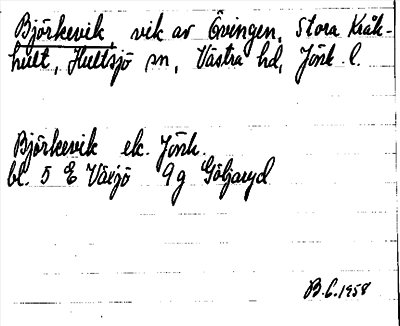 Björkevik, vik av Övingen, Stora Kråk-
hult, Hultsjö sn, Västra hd, Jönk. l.
Björkevik ek. Jönk.
bl. 5 E Växjö 9g Göljaryd
B.C. 1958